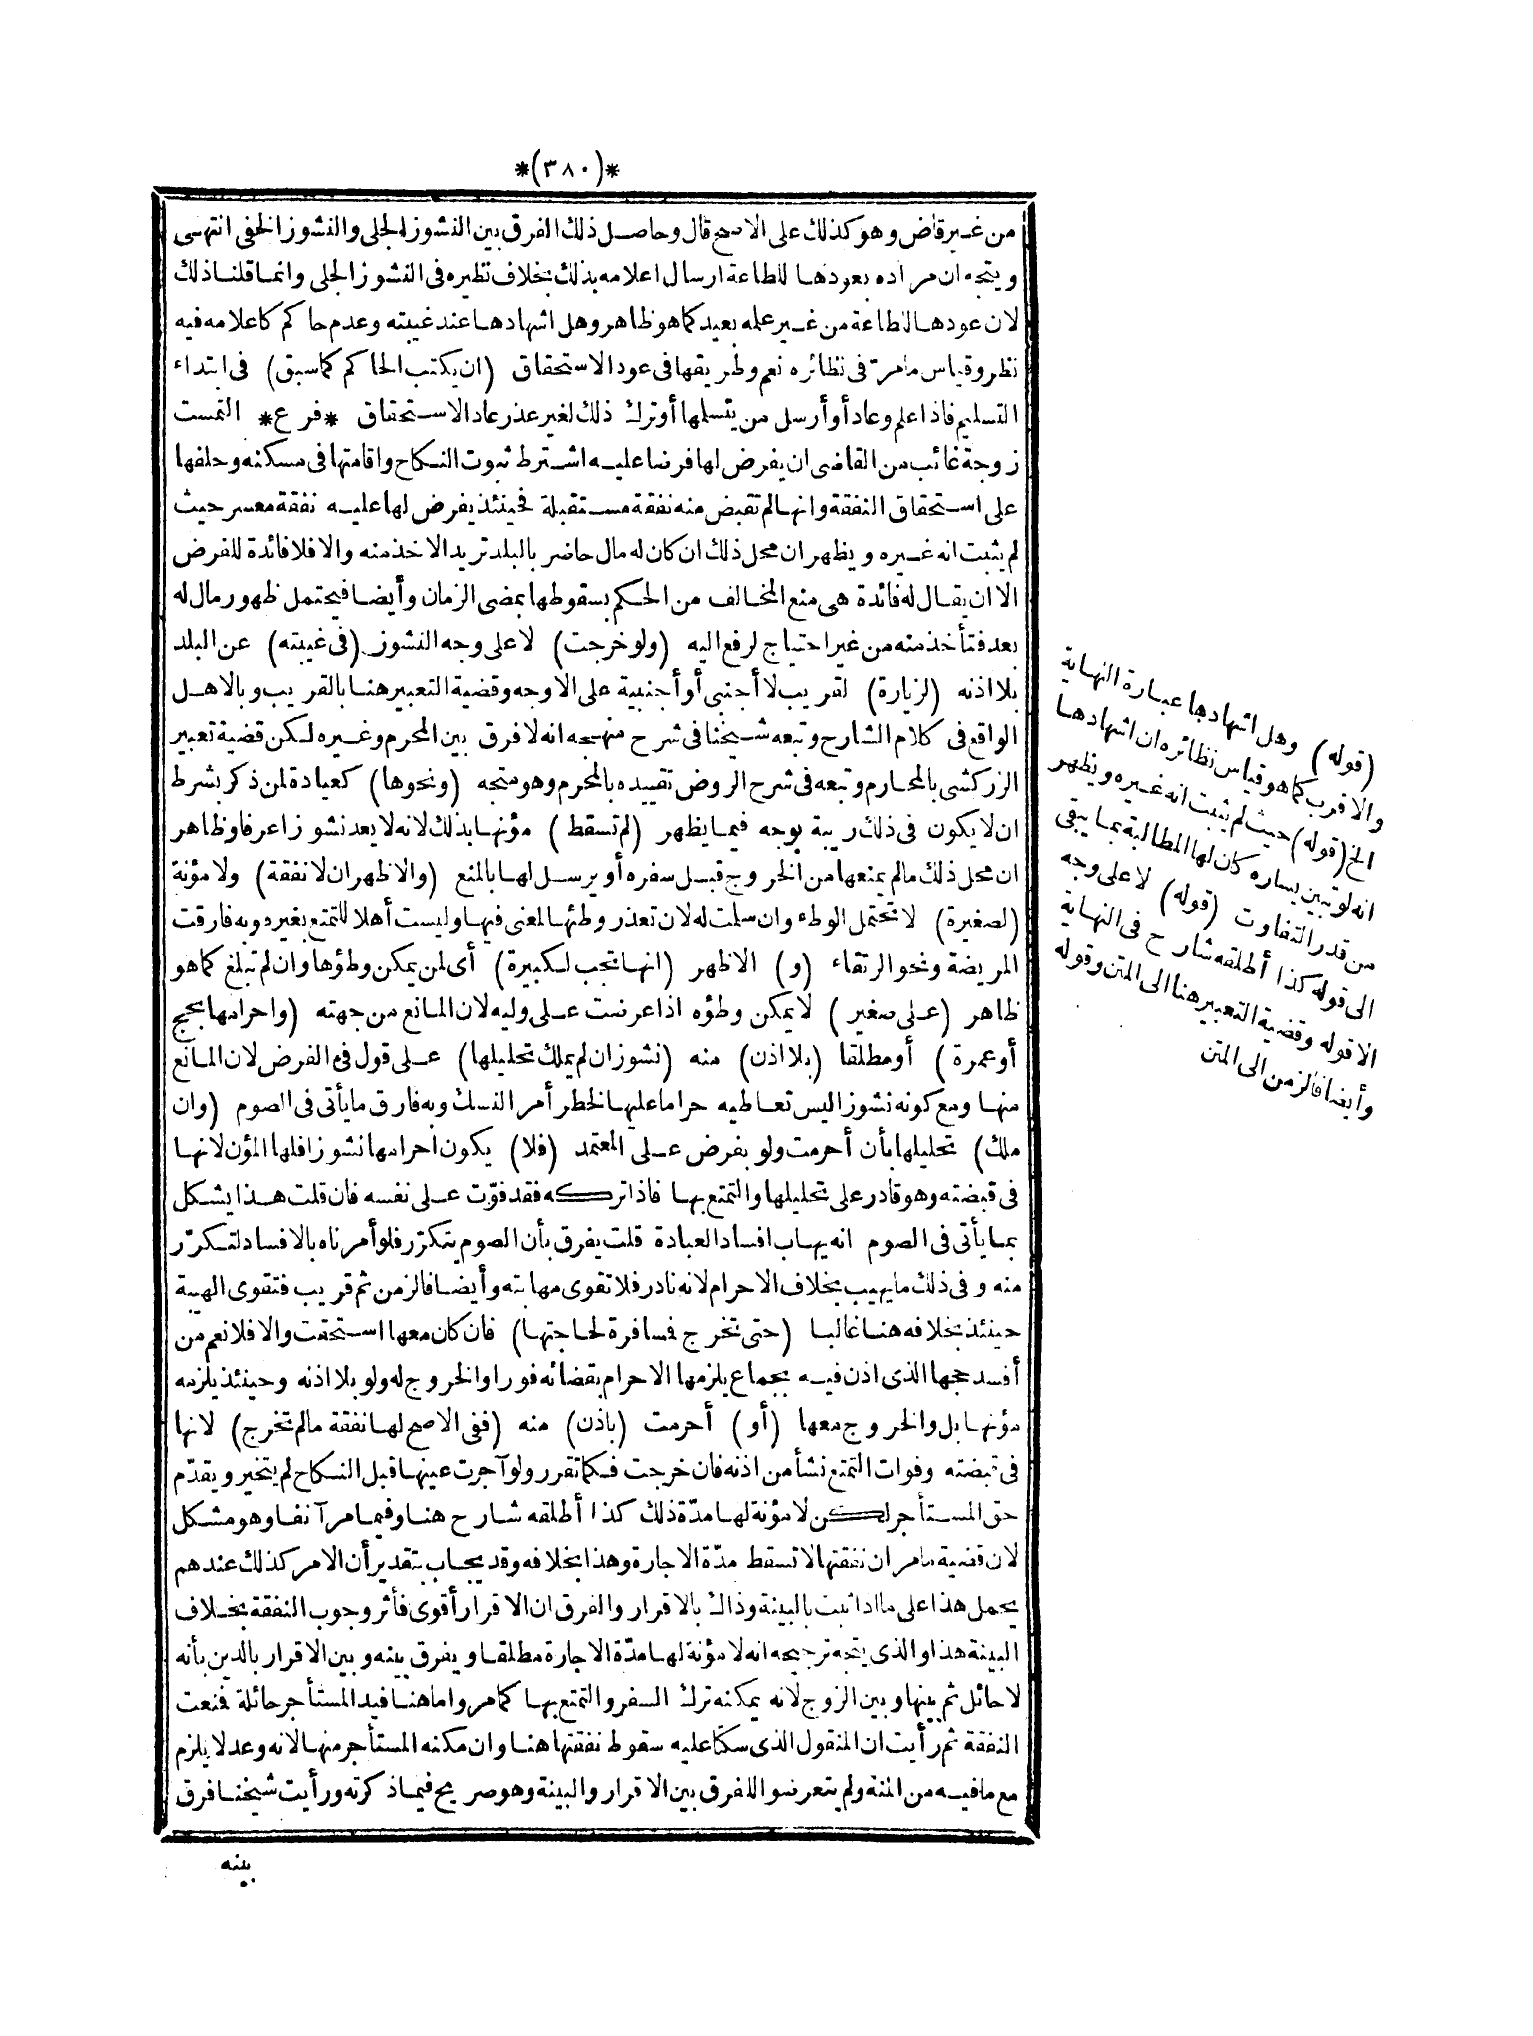 *(٣٨٠)*
من غير قاض وهو كذلك على الاصح قال وحاصل ذلك الفرق بين النشوز الجلى والنشوز الخفى انتهى
ويتجه ان مراده بعودها للطاعة ارسال اعلامه بذلك بخلاف نظيره فى النشوز الجلى وانما قلنا ذلك
لان عودها للطاعة من غير علمه بعيد كما هو ظاهر وهل اشهادها عند غيبته وعدم حاكم كاعلامه فيه
نظر وقياس مامرّ فى نظائره نعم وطريقها فى عود الاستحقاق (ان يكتب الحاكم كما سبق) فى ابتداء
التسليم فاذا علم وعاد أو أرسل من يتسلمها أو ترك ذلك لغير عذر عاد الاستحقاق *فرع* التمست
زوجة غائب من القاضى ان يفرض لها فرضا عليه اشترط ثبوت النكاح واقامتها فى مسكنه وحلفها
على استحقاق النفقة وانها لم تقبض منه نفقة مستقبلة فحينئذ يفرض لها عليه نفقة معسر حيث
لم يثبت انه غيره ويظهر ان محل ذلك ان كان له مال حاضر بالبلد تريد الاخذ منه والا فلا فائدة للفرض
الا ان يقال له فائدة هى منع المخالف من الحكم بسقوطها بمضى الزمان وأيضا فيحتمل ظهور مال له
بعد فتأخذ منه من غير احتياج لرفع اليه (ولو خرجت) لا على وجه النشوز (فى غيبته) عن البلد
بلا اذنه (لزيارة) لقريب لا أجنبى أو أجنبية على الاوجه وقضية التعبير هنا بالقريب وبالاهل
الواقع فى كلام الشارح وتبعه شيخنا فى شرح منهجه انه لا فرق بين المحرم وغيره لكن قضية تعبير
الزركشى بالمحارم وتبعه فى شرح الروض تقييده بالمحرم وهو متجه (ونحوها) كعيادة لمن ذكر بشرط
ان لا يكون فى ذلك ريبة بوجه فيما يظهر (لم تسقط) مؤنها بذلك لانه لا يعد نشوزا عرفا وظاهر
ان محل ذلك مالم يمنعها من الخروج قبل سفره أو يرسل لها بالمنع (والاظهر ان لا نفقة) ولا مؤنة
(لصغيرة) لا تحتمل الوطء وان سلمت له لان تعذر وطئها لمعنى فيها وليست أهلا للتمتع بغيره وبه فارقت
المريضة ونحو الرتقاء (و) الاظهر (انها تجب لكبيرة) أى لمن يمكن وطؤها وان لم تبلغ كما هو
ظاهر (على صغير) لا يمكن وطؤه اذا عرضت على وليه لان المانع من جهته (واحرامها بحج
أو عمرة) أو مطلقا (بلا اذن) منه (نشوز ان لم يملك تحليلها) على قول فى الفرض لان المانع
منها ومع كونه نشوزا ليس تعاطيه حراما عليها لخطر أمر النسك وبه فارق ما يأتى فى الصوم (وان
ملك) تحليلها بأن أحرمت ولو بفرض على المعتمد (فلا) يكون احرامها نشوزا فلها المؤن لانها
فى قبضته وهو قادر على تحليلها والتمتع بها فاذا تركه فقد فوّت على نفسه فان قلت هذا يشكل
بما يأتى فى الصوم انه يهاب افساد العبادة قلت يفرق بأن الصوم يتكرّر فلو أمرناه بالافساد لتكرّر
منه وفى ذلك ما يهيب بخلاف الاحرام لانه نادر فلا تقوى مهابته وأيضا فالزمن ثم قريب فتقوى الهيبة
حينئذ بخلافه هنا غالبا (حتى تخرج فمسافرة لحاجتها) فان كان معها استحقت والا فلا نعم من
أفسد حجها الذى اذن فيه بجماع يلزمها الاحرام بقضائه فورا والخروج له ولو بلا اذنه وحينئذ يلزمه
مؤنها بل والخروج معها (أو) أحرمت (باذن) منه (ففى الاصح لها نفقة مالم تخرج) لانها
فى قبضته وفوات التمتع نشأ من اذنه فان خرجت فكما تقرر ولو آجرت عينها قبل النكاح لم يتخير ويقدّم
حق المستأجر لكن لا مؤنة لها مدّة ذلك كذا أطلقه شارح هنا وفيما مر آنفا وهو مشكل
لان قضية مامر ان نفقتها لا تسقط مدّة الاجارة وهذا بخلافه وقد يجاب بتقدير أن الامر كذلك عندهم
يحمل هذا على ما اذا ثبت بالبينة وذاك بالاقرار والفرق ان الاقرار أقوى فأثر وجوب النفقة بخلاف
البينة هذا والذى يتجه ترجيحه انه لا مؤنة لها مدّة الاجارة مطلقا ويفرق بينه وبين الاقرار بالدين بأنه
لا حائل ثم بينها وبين الزوج لانه يمكنه ترك السفر والتمتع بها كما مر واما هنا فيد المستأجر حائلة فمنعت
النفقة ثم رأيت ان المنقول الذى سكتا عليه سقوط نفقتها هنا وان مكنه المستأجر منها لانه وعد لا يلزم
مع ما فيه من المنة ولم يتعرضوا للفرق بين الاقرار والبينة وهو صريح فيما ذكرته ورأيت شيخنا فرق
بينه
(قوله) وهل اشهادها عبارة النهاية
والاقرب كما هو قياس نظائره ان اشهادها
الخ (قوله) حيث لم يثبت انه غيره ويظهر
انه لو تبين يساره كان لها المطالبة بما يبقى
من قدر التفاوت (قوله) لا على وجه
الى قوله كذا أطلقه شارح فى النهاية
الا قوله وقضية التعبير هنا الى المتن وقوله
وأيضا فالزمن الى المتن